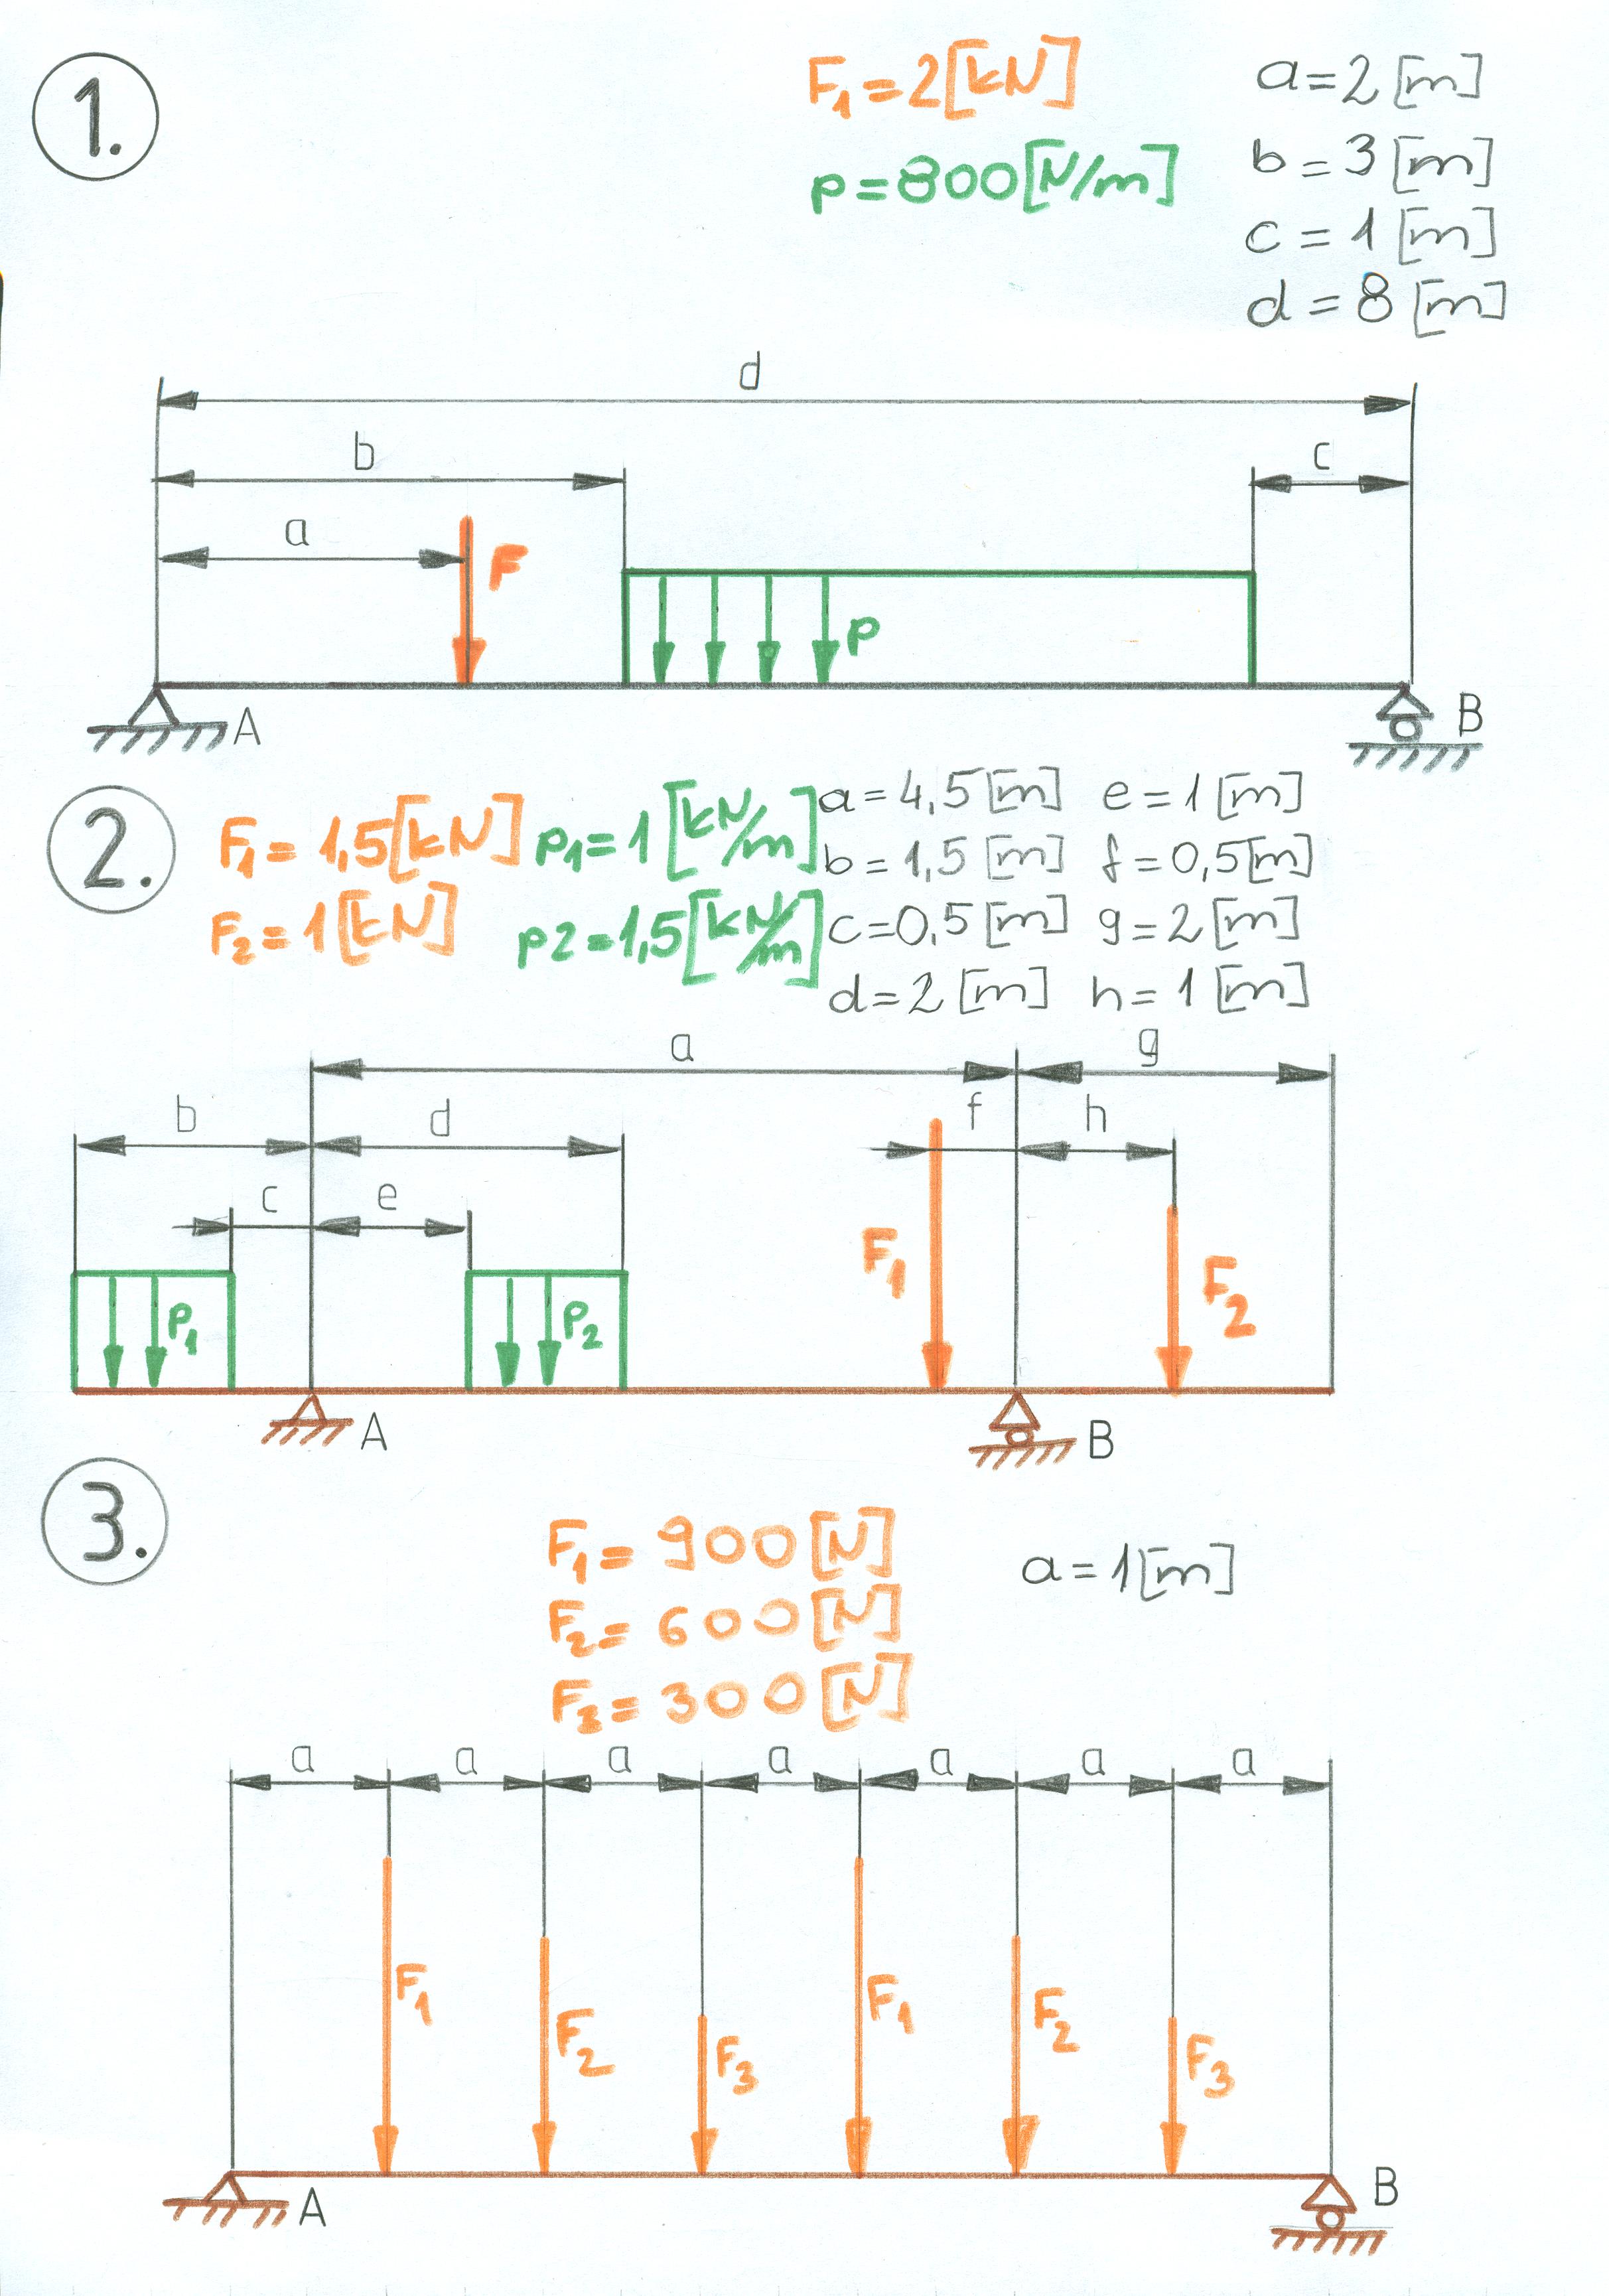 1.
F₁=2[kN]
p=800[N/m]
a=2 [m]
b=3 [m]
c=1 [m]
d=8 [m]
d
b
c
a
F
p
A
B
2.
F₁=1,5[kN]
F₂=1[kN]
p₁=1[kN/m]
p2=1,5[kN/m]
a=4,5[m]
b=1,5 [m]
c=0,5 [m]
d=2 [m]
e=1 [m]
f=0,5[m]
g=2 [m]
h=1 [m]
a
g
b
d
f
h
c
e
F₁
F₂
p₁
p₂
A
B
3.
F₁=900[N]
F₂=600[N]
F₃=300[N]
a=1[m]
a a a a a a a
F₁
F₂
F₃
F₁
F₂
F₃
A
B